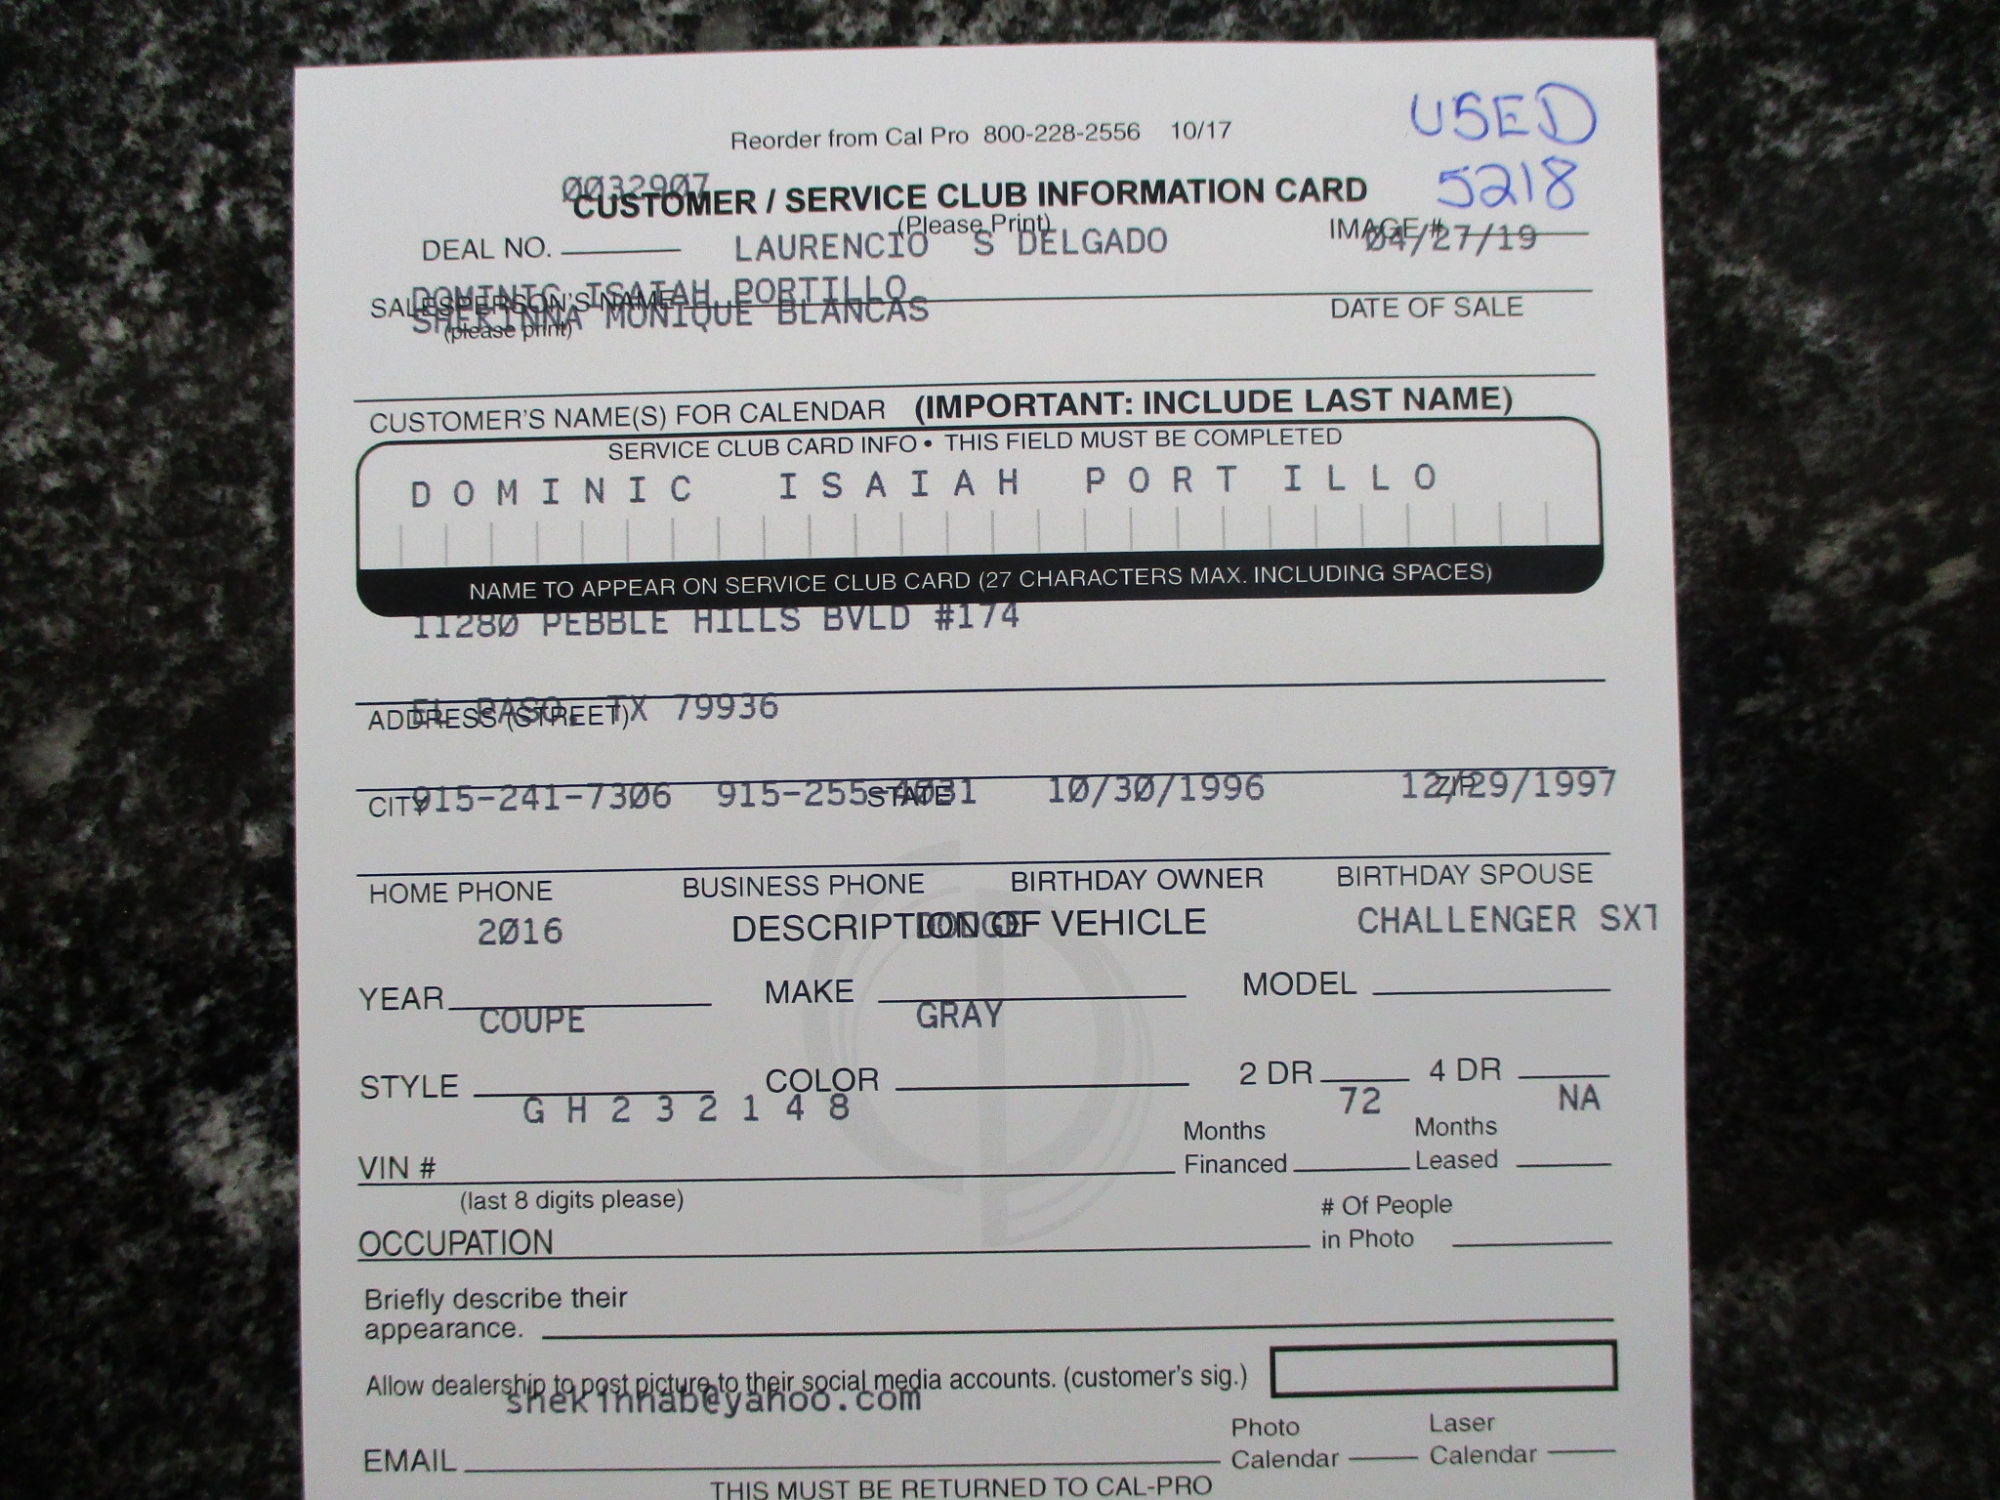 USED
Reorder from Cal Pro 800-228-2556 10/17
5218
0032907
CUSTOMER / SERVICE CLUB INFORMATION CARD
(Please Print)
DEAL NO. LAURENCIO S DELGADO IMAGE # 04/27/19
DOMINIC ISAIAH PORTILLO
SALESPERSON'S NAME DATE OF SALE
SHEKINNA MONIQUE BLANCAS
(please print)
CUSTOMER'S NAME(S) FOR CALENDAR (IMPORTANT: INCLUDE LAST NAME)
SERVICE CLUB CARD INFO • THIS FIELD MUST BE COMPLETED
DOMINIC ISAIAH PORTILLO
NAME TO APPEAR ON SERVICE CLUB CARD (27 CHARACTERS MAX. INCLUDING SPACES)
11280 PEBBLE HILLS BVLD #174
EL PASO, TX 79936
ADDRESS (STREET)
915-241-7306 915-255-4031 10/30/1996 12/29/1997
CITY STATE ZIP
HOME PHONE BUSINESS PHONE BIRTHDAY OWNER BIRTHDAY SPOUSE
2016 DODGE CHALLENGER SXT
DESCRIPTION OF VEHICLE
YEAR MAKE MODEL
COUPE GRAY
STYLE COLOR 2 DR 4 DR
GH232148 72 NA
VIN # Months Financed Months Leased
(last 8 digits please)
OCCUPATION # Of People in Photo
Briefly describe their
appearance.
Allow dealership to post picture to their social media accounts. (customer's sig.)
shekinnab@yahoo.com
EMAIL Photo Calendar Laser Calendar
THIS MUST BE RETURNED TO CAL-PRO